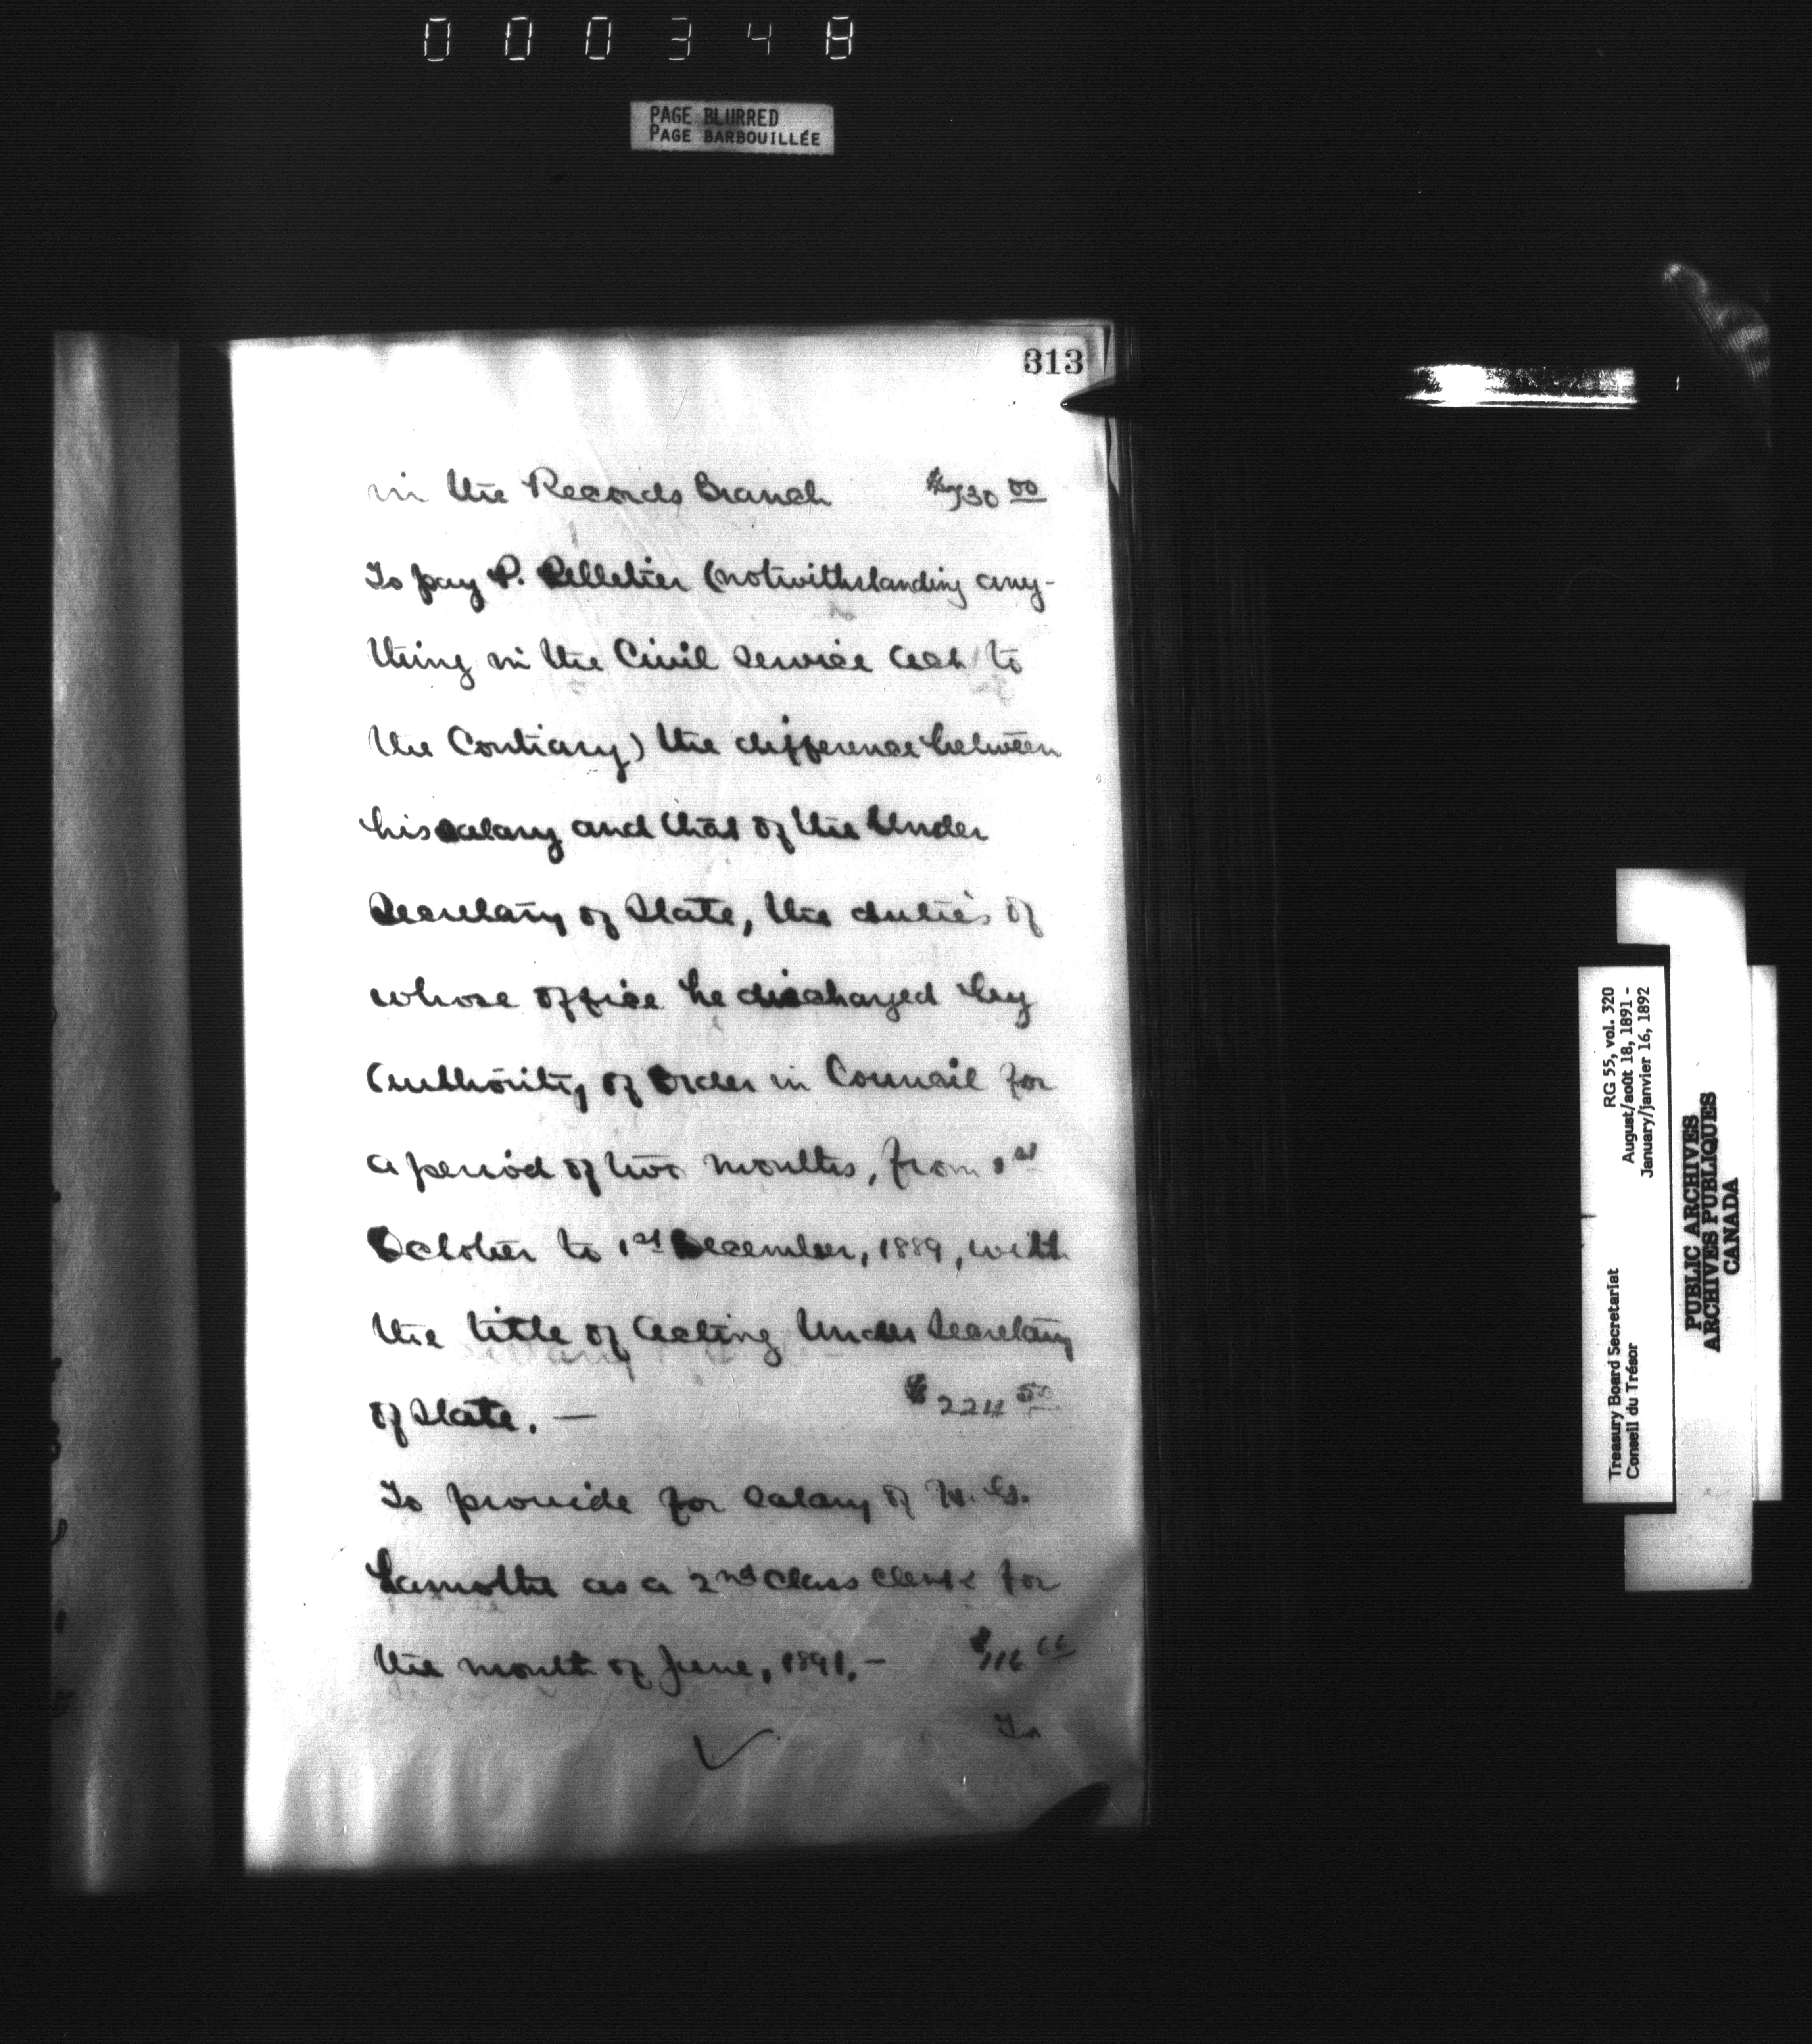 000348
PAGE BLURRED
PAGE BARBOUILLÉE
313
in the Records Branch
To pay P. Pelletier (notwithstanding any-
thing in the Civil Service Act to
the Contrary) the difference between
his salary and that of the Under
Secretary of State, the duties of
whose office he discharged by
Authority of Order in Council for
a period of two months, from 1st
October to 1st December, 1889, with
the title of Acting Under Secretary
of State. — $224 50
To provide for salary of
Lamothe as a 2nd Class Clerk for
the month of June, 1891. — $116 66
To
RG 55, vol. 320
August/août 18, 1891 -
January/janvier 16, 1892
Treasury Board Secretariat
Conseil du Trésor
PUBLIC ARCHIVES
ARCHIVES PUBLIQUES
CANADA